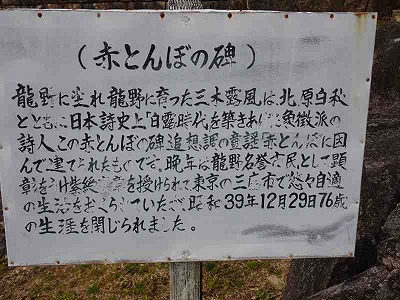 (赤とんぼの碑)
龍野に生れ龍野に育った三木露風は、北原白秋
とともに日本詩史上「白露時代を築きあげた象徴派の
詩人、この赤とんぼの碑 追想調の童謡「赤とんぼ」に因
んで建てられたものです。晩年は龍野名誉市民として顕
彰をうけ紫綬 章を授けられて東京の三鷹市で悠々自適
の生活をおくらしていたが 昭和39年12月29日76歳
の生涯を閉じられました。